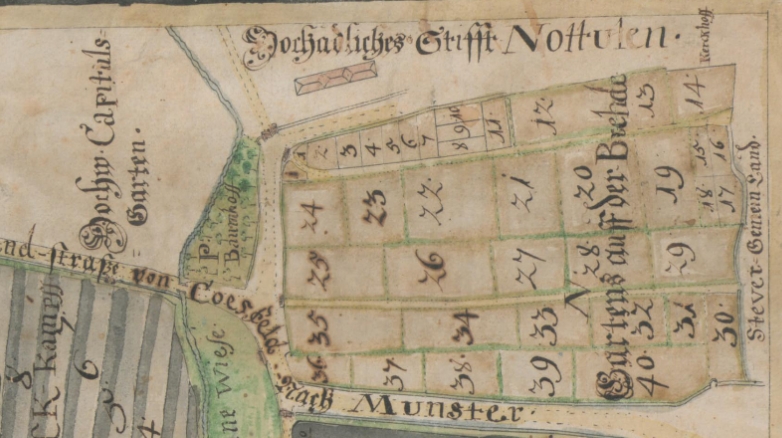 Hochadliches Stifft Nottulen.
Kerckhoff
Hochw. Capituls
Garten.
P.
Baumhoff
straße von Coesfeld
Nach Munster.
ne Wiese
CK Kampff
8
7
6
5
4
N
Gartens auff der Brehde
Stever Gemein Land.
1
2
3
4
5
6
7
8
9
10
11
12
13
14
15
16
17
18
19
20
21
22
23
24
25
26
27
28
29
30
31
32
33
34
35
36
37
38
39
40